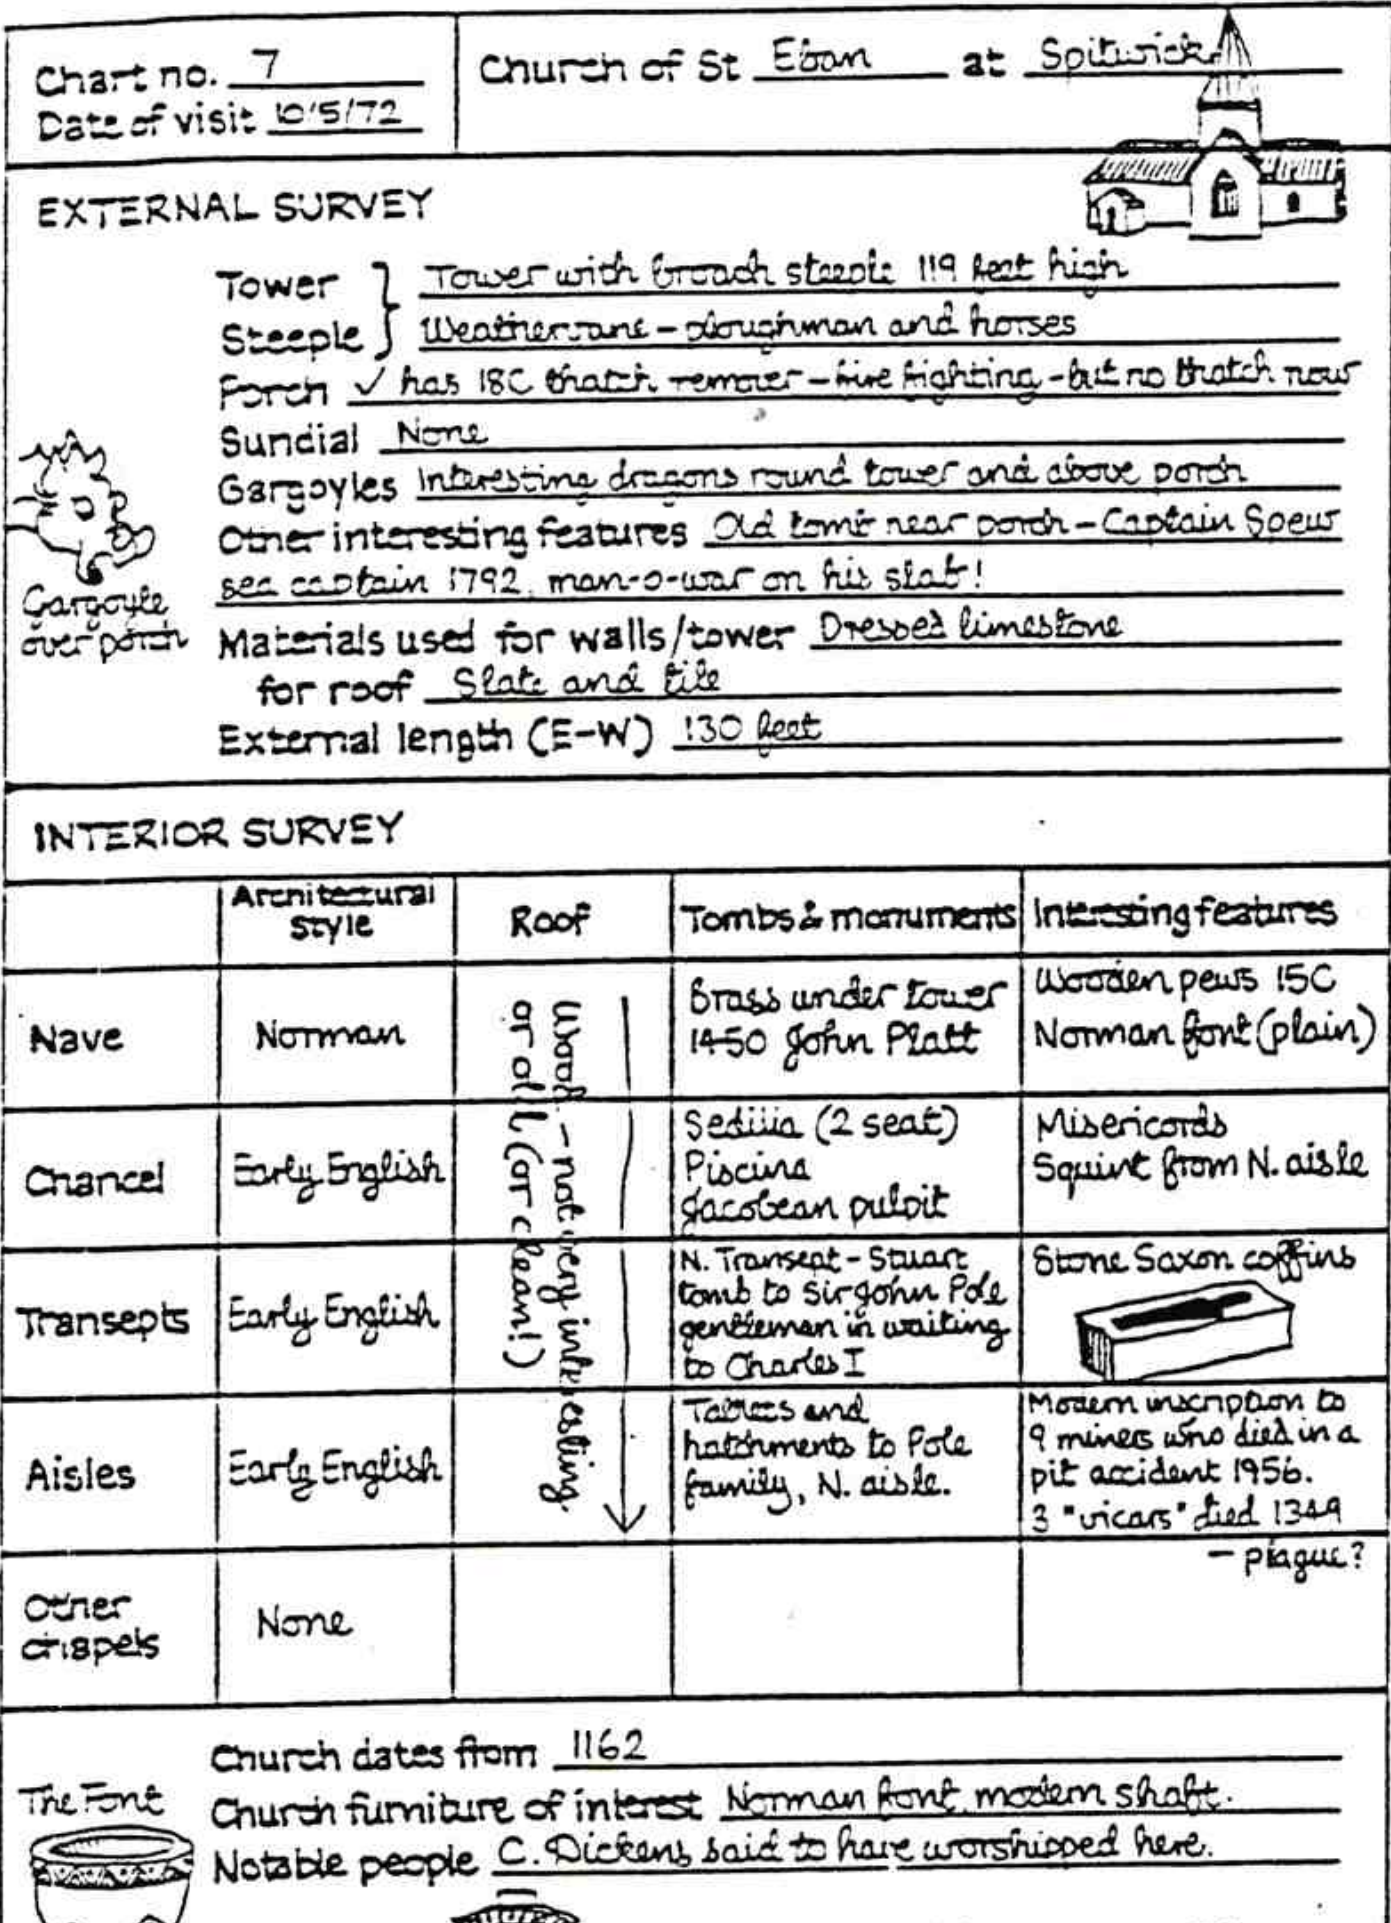 Chart no. 7
Date of visit 10/5/72
Church of St Eban at Spitwick
EXTERNAL SURVEY
Tower } Tower with broach steeple 119 feet high
Steeple } Weathervane – ploughman and horses
Porch ✓ has 18C thatch remover – fire fighting – but no thatch now
Sundial None
Gargoyles Interesting dragons round tower and above porch
Other interesting features Old tomb near porch – Captain Spew
sea captain 1792, man-o-war on his slab!
Gargoyle
over porch
Materials used for walls/tower Dressed limestone
for roof Slate and tile
External length (E–W) 130 feet
INTERIOR SURVEY
Architectural
style
Roof
Tombs & monuments
Interesting features
Nave
Norman
Wood – not very interesting
or old (or clean!)
Brass under tower
1450 John Platt
Wooden pews 15C
Norman font (plain)
Chancel
Early English
Sedilia (2 seat)
Piscina
Jacobean pulpit
Misericords
Squint from N. aisle
Transepts
Early English
N. Transept – Stuart
tomb to Sir John Pole
gentleman in waiting
to Charles I
Stone Saxon coffins
Aisles
Early English
Tablets and
hatchments to Pole
family, N. aisle.
Modern inscription to
9 miners who died in a
pit accident 1956.
3 "vicars" died 1349
– plague?
Other
chapels
None
Church dates from 1162
The Font
Church furniture of interest Norman font, modern shaft.
Notable people C. Dickens said to have worshipped here.